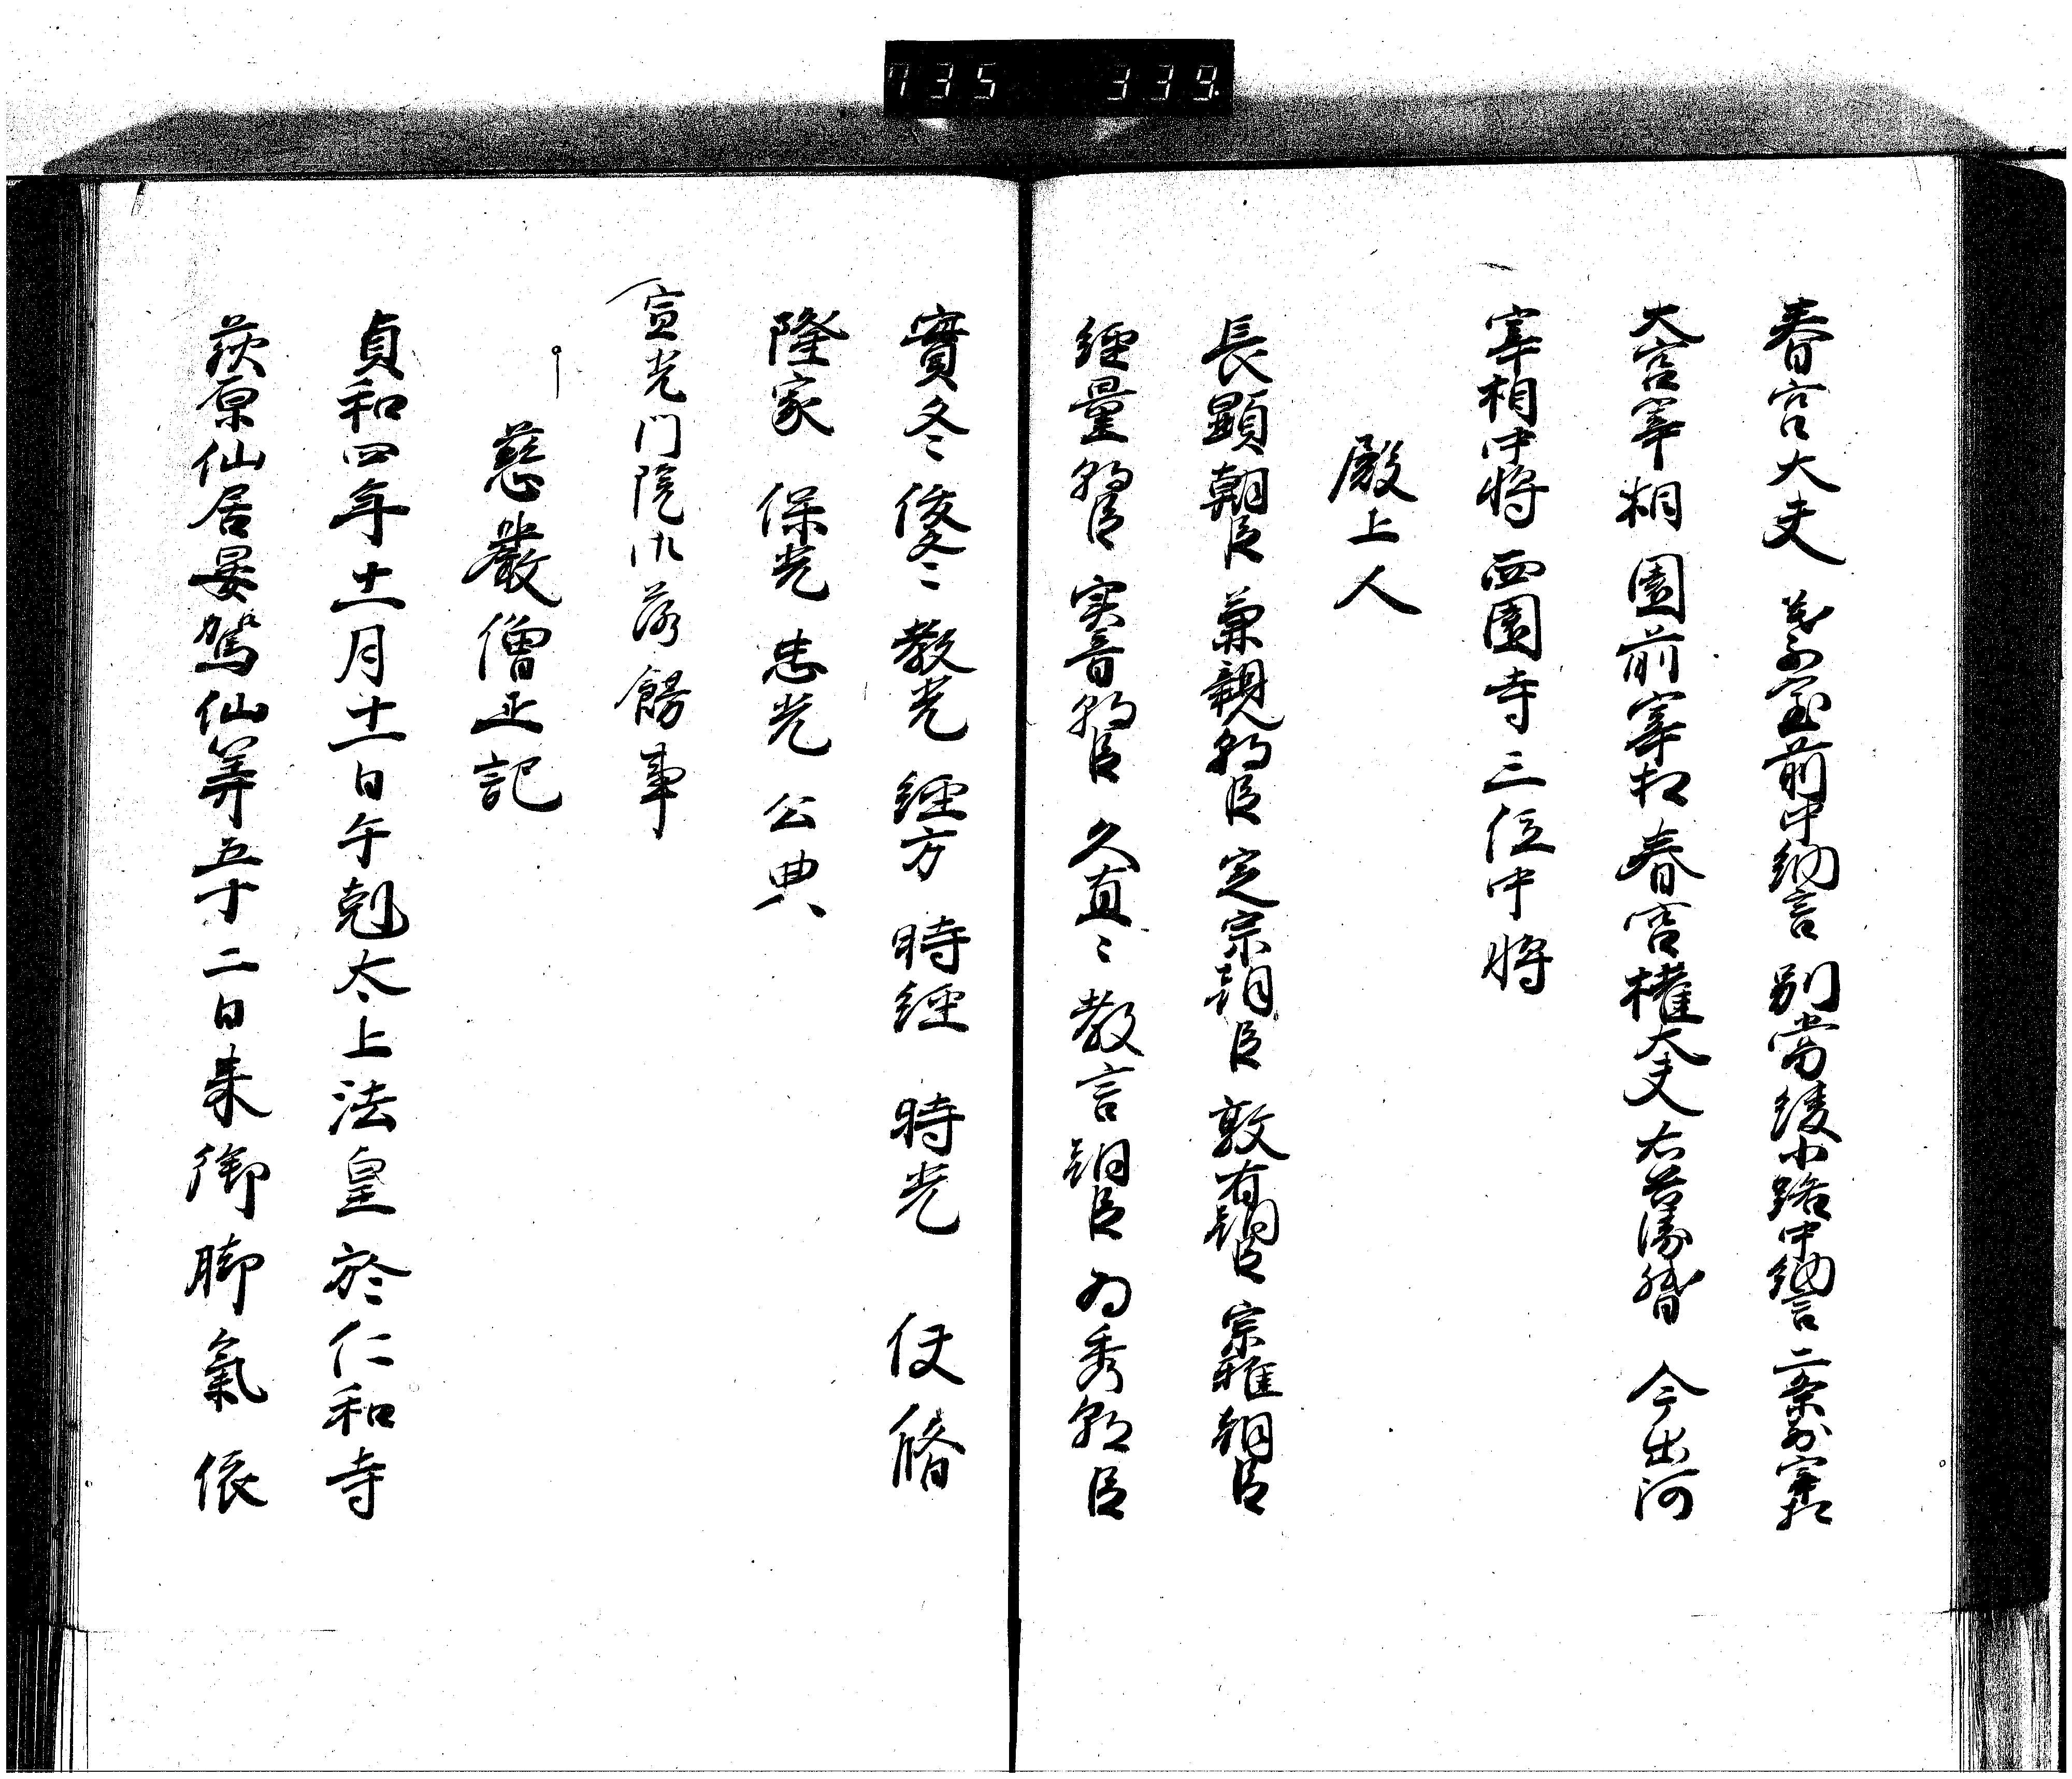 735 339
春宮大夫 前中納言 別當 綾小路中納言 二条前宰相
大宮宰相 園前宰相 春宮権大夫 右兵衛督 今出河
宰相中将 西園寺三位中将
殿上人
長顕朝臣 兼親朝臣 定宗朝臣 敦有朝臣 宗雅朝臣
経量朝臣 実音朝臣 久直〻 教言朝臣 為秀朝臣
實冬〻 俊冬〻 教光 経方 時経 時光 伊脩
隆家 保光 忠光 公典
宣光門院御落餝事
慈嚴僧正記
貞和四年十一月十一日午剋太上法皇於仁和寺
萩原仙居晏駕仙筭五十二日来御脚氣依